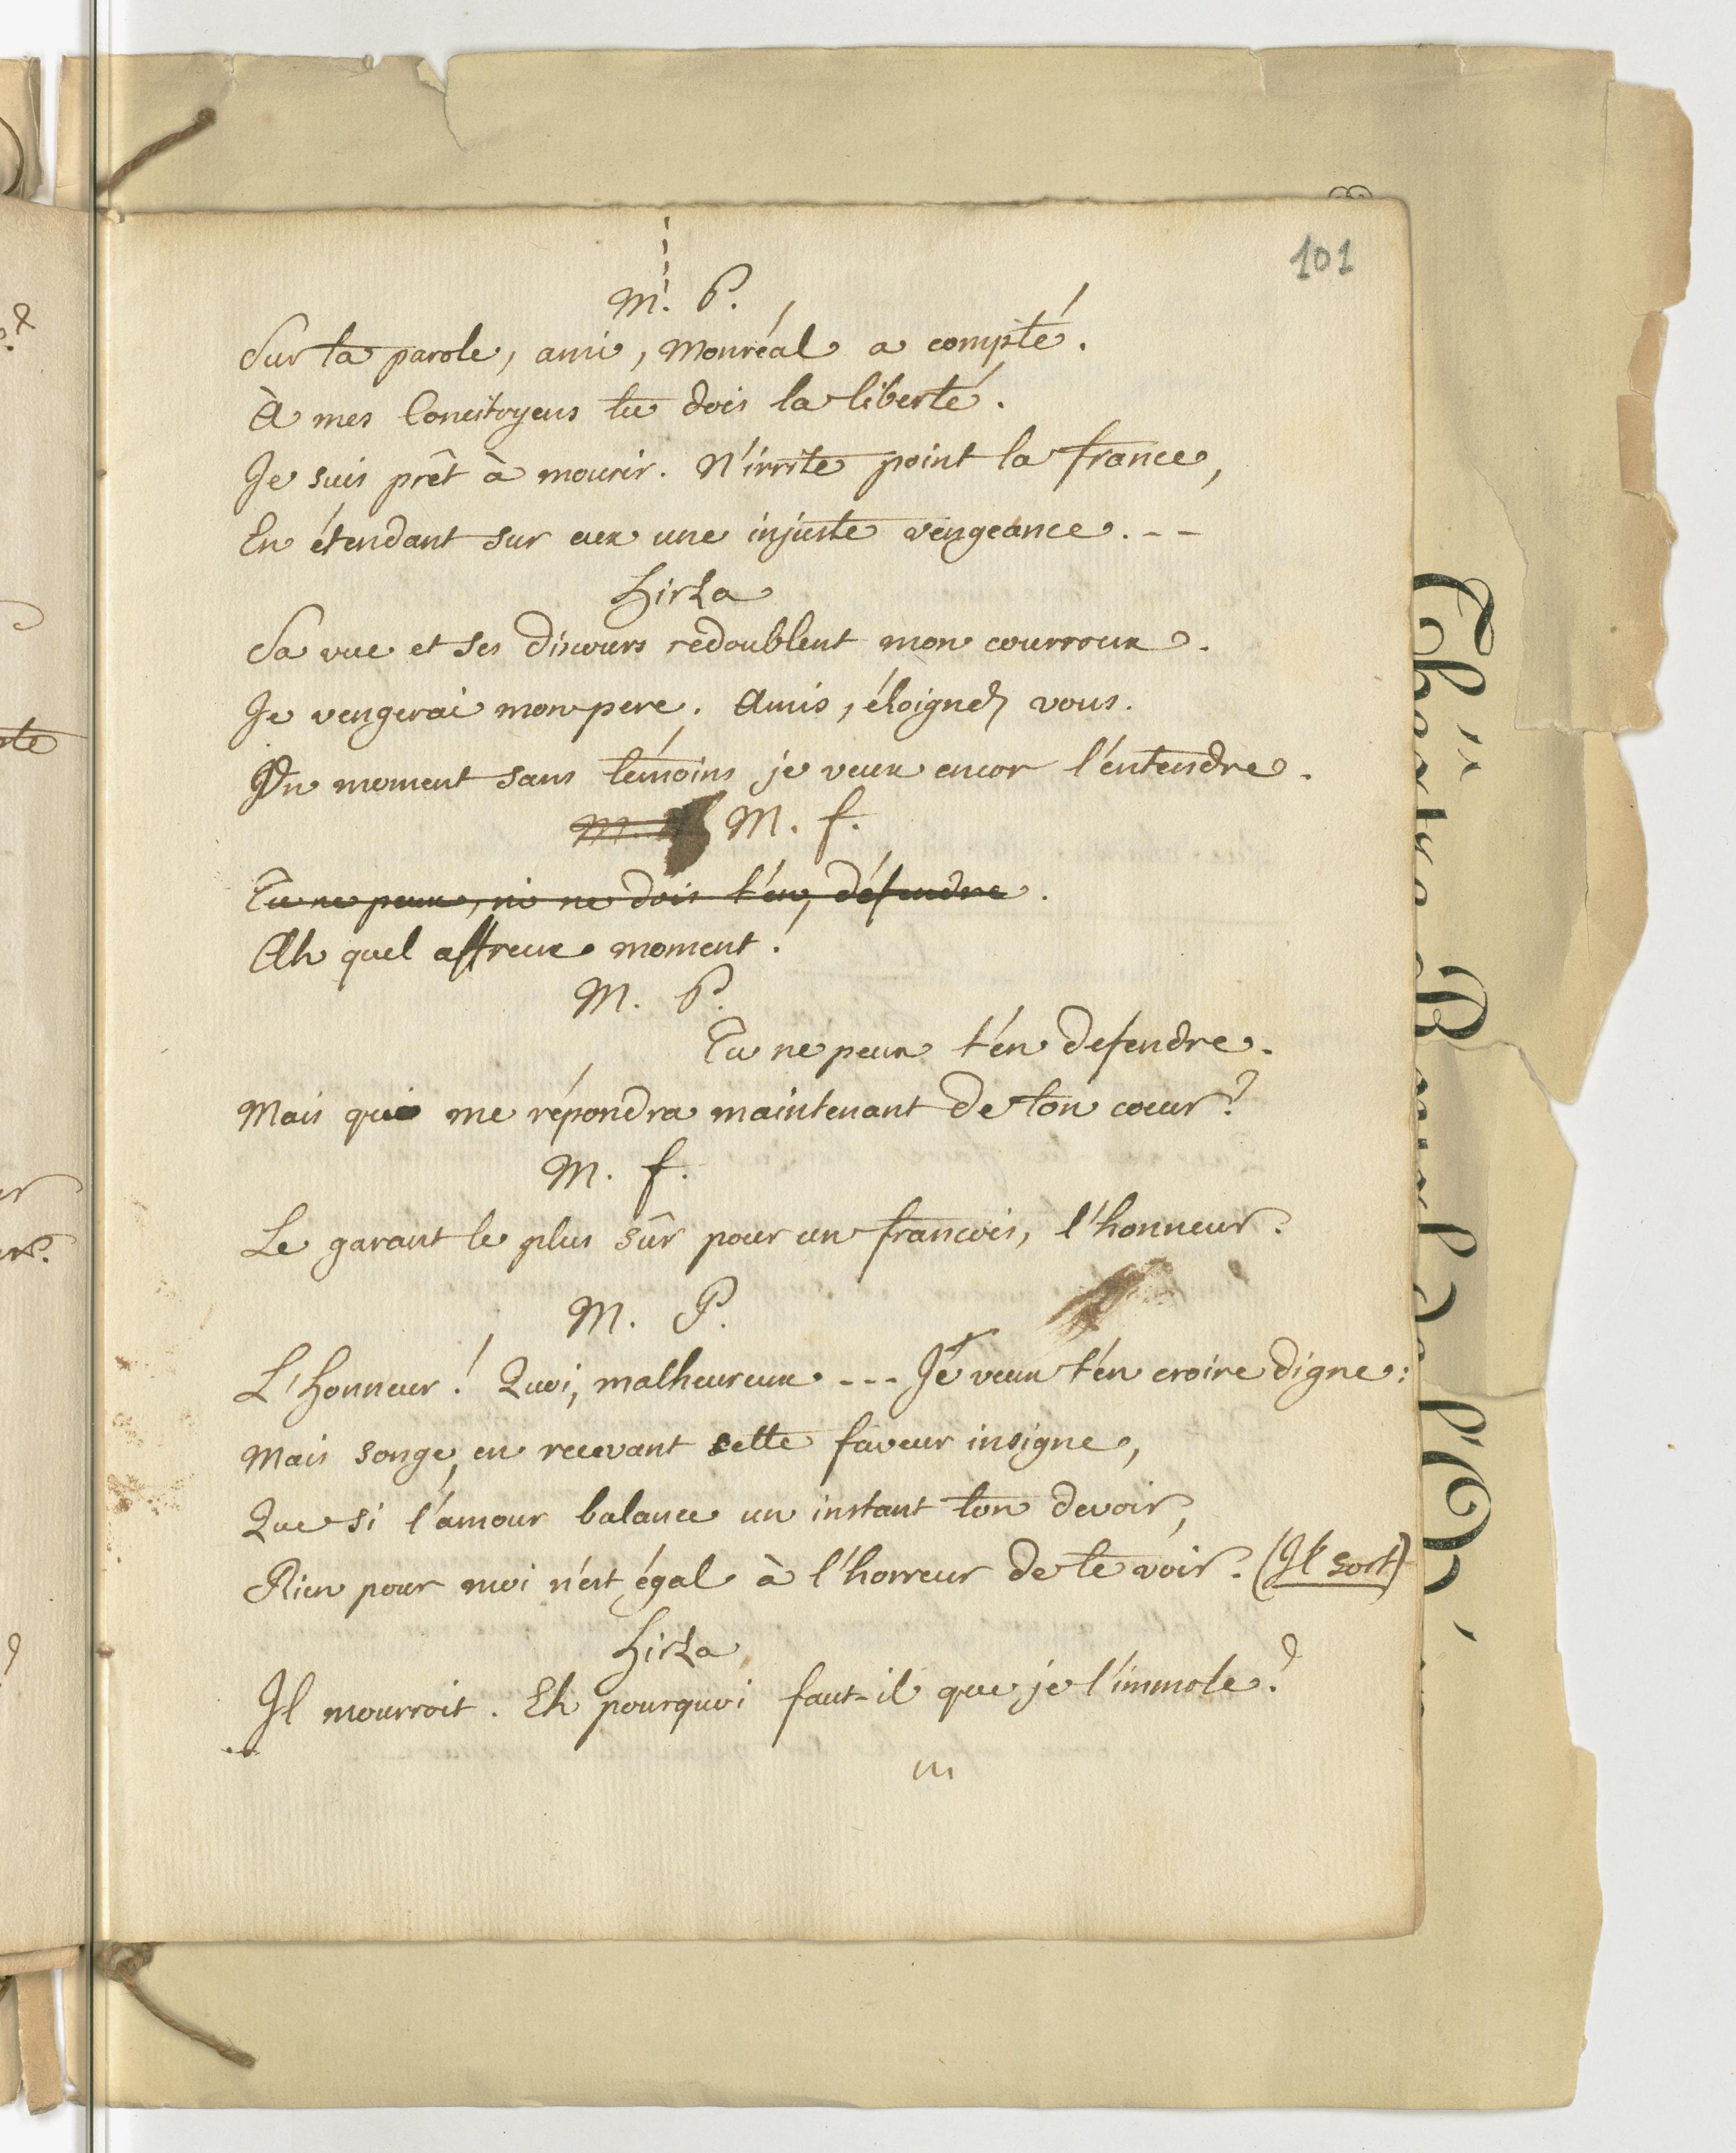 101
M. P.
Sur ta parole, ami, Monréal a compté.
À mes Concitoyens tu dois la liberté.
Je suis prêt à mourir. N'irrite point la france,
En étendant sur eux une injuste vengeance. - -
hirza
Sa vue et ses discours redoublent mon courroux.
Je vengerai mon pere. Amis, éloignez vous.
Un moment sans témoins je veux encor l'entendre.
M. f.
Tu ne peux, ni ne dois t'en défendre.
Ah quel affreux moment!
M. P.
Tu ne peux t'en defendre.
Mais qui me répondra maintenant de ton cœur?
M. f.
Le garant le plus sûr pour un francois, l'honneur.
M. P.
L'honneur! Quoi, malheureux - - - Je veux t'en croire digne:
Mais songe, en recevant cette faveur insigne,
Que si l'amour balance un instant ton devoir,
Rien pour moi n'est égal à l'horreur de te voir. (Il sort)
hirza
Il mourroit. Eh pourquoi faut-il que je l'immole?